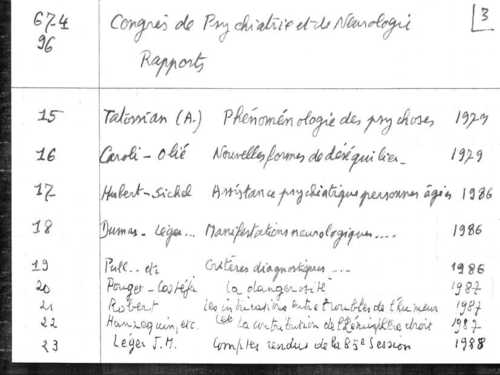 674 Congrès de Psychiatrie et de Neurologie 3
96
Rapports
15 Tatossian (A.) Phénoménologie des psychoses 1979
16 Caroli - Olié Nouvelles formes de déséquilibre 1979
17 Hubert-Sichel Assistance psychiatrique personnes âgées 1986
18 Dumas - Léger... Manifestations neurologiques.... 1986
19 Pull.. etc Critères diagnostiques... 1986
20 Pouget - Costeja La dangerosité 1987
21 Robert Les intrications entre troubles de l'humeur 1987
22 Hannequin, etc. la contribution de l'hémisphère droit 1987
23 Léger J.M. Comptes rendus de la 85e Session 1988